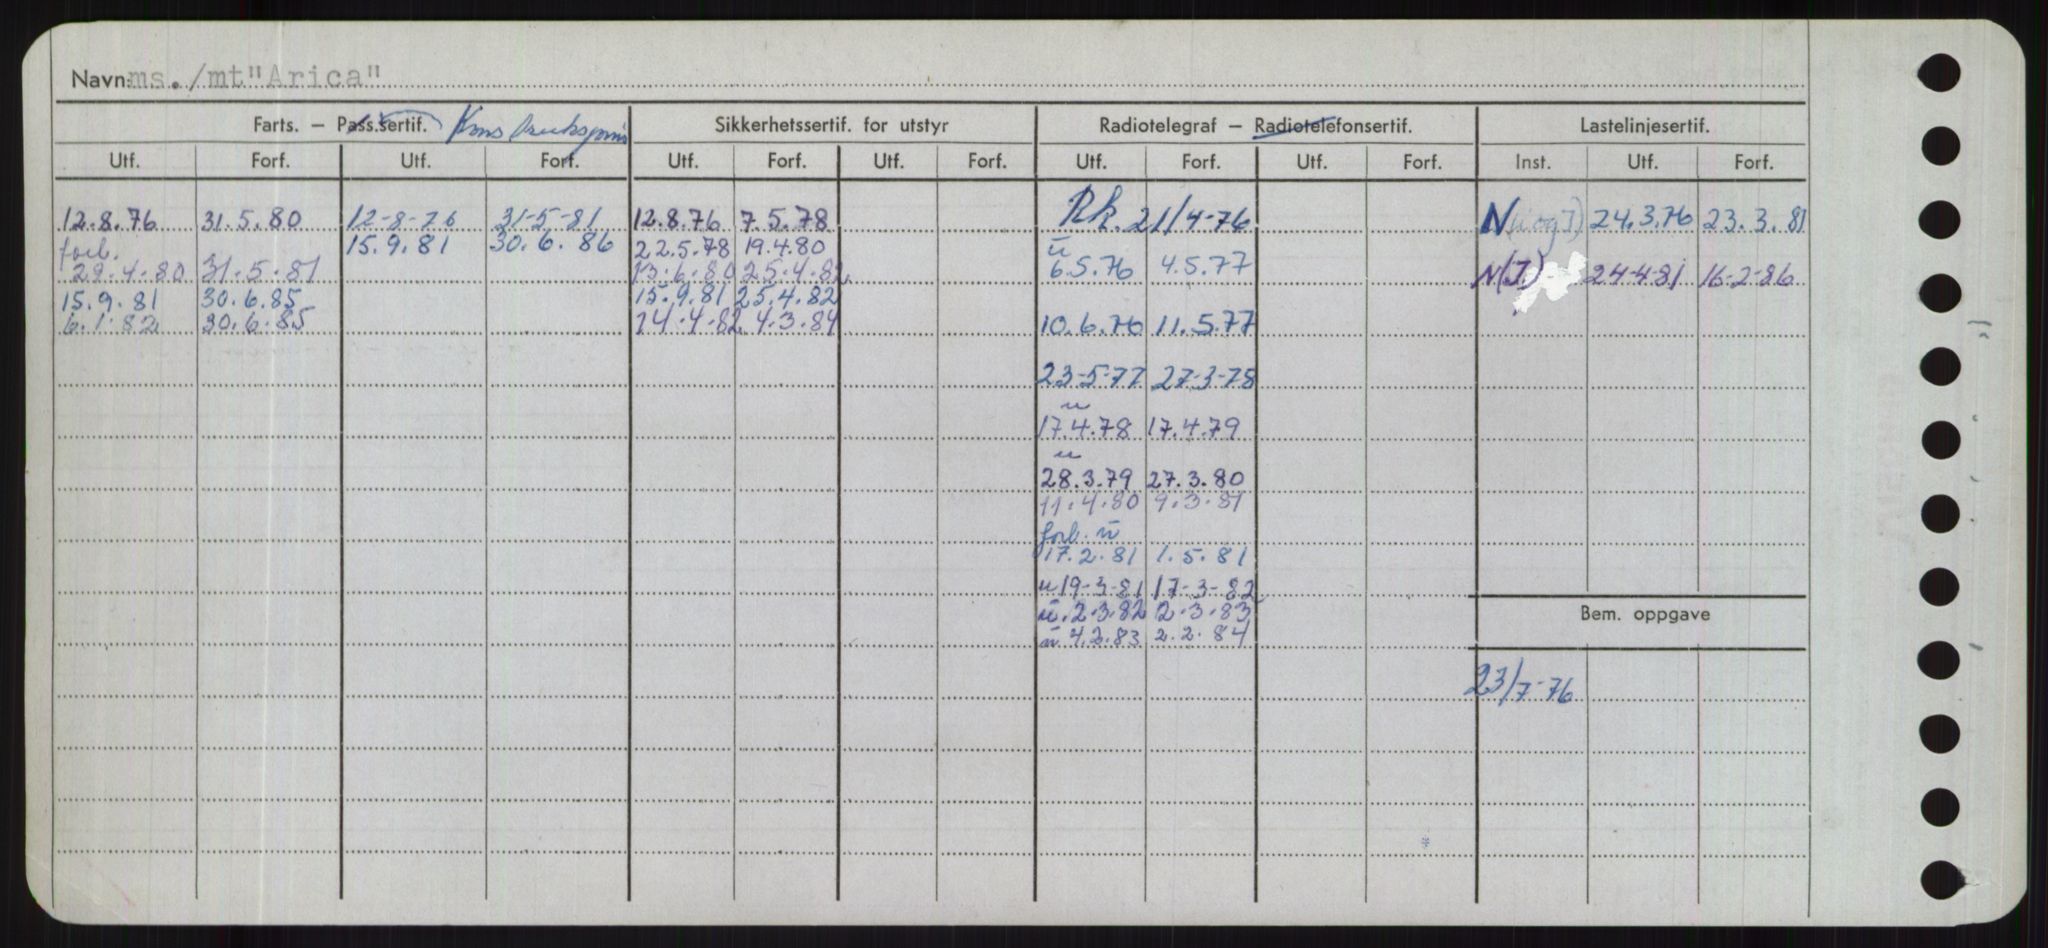 Navn: ms./mt "Arica"
Farts. – Pass.sertif. Kons Sikkerhetssertif. for utstyr Radiotelegraf – Radiotelefonsertif. Lastelinjesertif.
Utf. Forf. Utf. Forf. Utf. Forf. Utf. Forf. Utf. Forf. Utf. Forf. Inst. Utf. Forf.
12.8.76 31.5.80 12-8-76 31-5-81 12.8.76 7.5.78 Rk. 21/4-76 N (i og J) 24.3.76 23.3.81
forb. 15.9.81 30.6.86 22.5.78 19.4.80 ū
29.4.80 31.5.81 13.6.80 25.4.82 6.5.76 4.5.77 N(J) 24-4-81 16-2-86
15.9.81 30.6.85 15.9.81 25.4.82
6.1.82 30.6.85 14.4.82 4.3.84 10.6.76 11.5.77
23-5-77 27-3-78
u
17.4.78 17.4.79
u
28.3.79 27.3.80
11.4.80 9.3.81
forb. ū
17.2.81 1.5.81
u 19-3-81 17-3-82
ū. 2.3.82 2.3.83
ū 4.2.83 2.2.84
Bem. oppgave
23/7-76